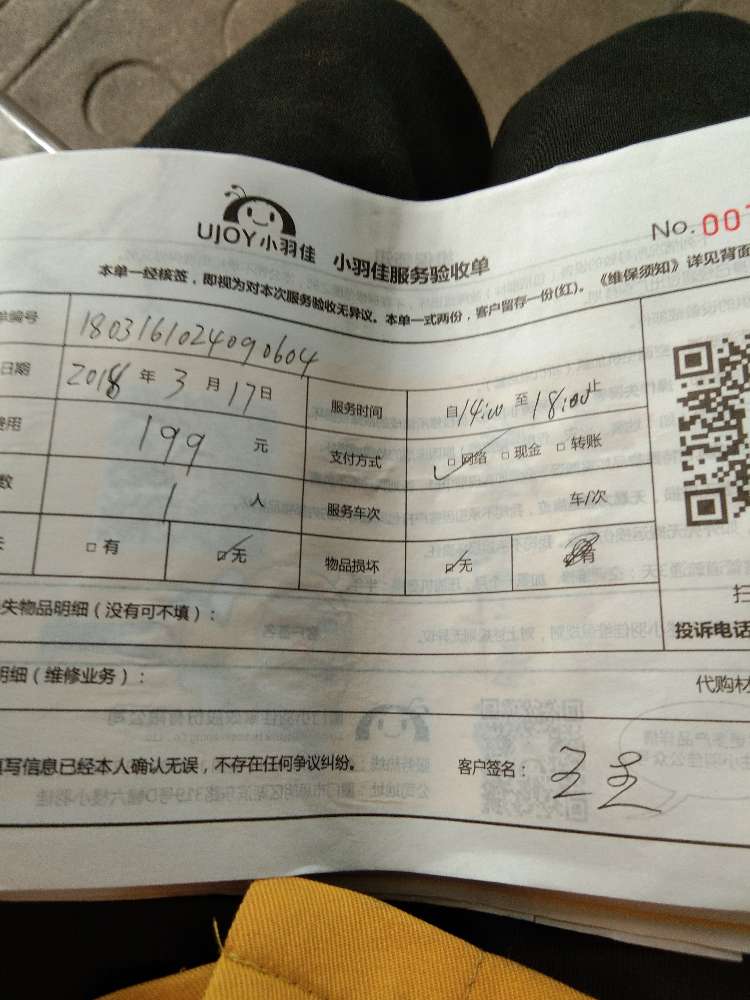 UJOY小羽佳 小羽佳服务验收单
No. 00
本单一经核签，即视为对本次服务验收无异议。本单一式两份，客户留存一份(红)。《维保须知》详见背面
单编号 1803161024090604
日期 2018 年 3 月 17 日 服务时间 自 14:00 至 18:00 止
费用 199 元 支付方式 网络 现金 转账
数 1 人 服务车次 车/次
失 有 无 物品损坏 无 有
失物品明细（没有可不填）：
投诉电话
明细（维修业务）：
代购材
填写信息已经本人确认无误，不存在任何争议纠纷。 客户签名：